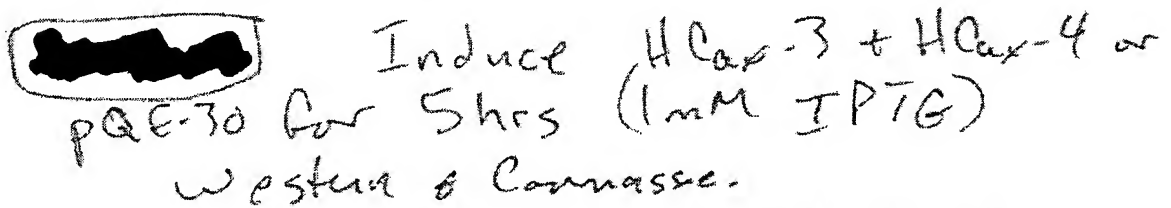 Induce HCax-3 + HCax-4 or
pQE-30 for 5hrs (1mM IPTG)
Western & Commasse.